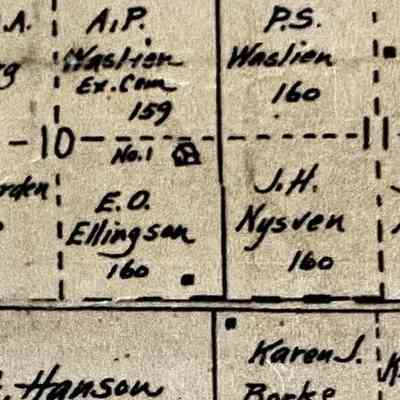 A.
A.P.
Waslien
Ex. Com
159
P.S.
Waslien
160
10
11
No. 1
rden
E.O.
Ellingson
160
J.H.
Nysven
160
Hanson
Karen J.
Borke